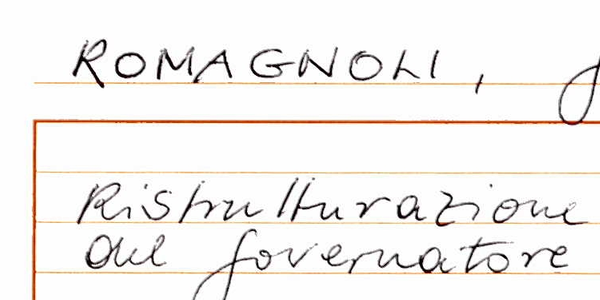 ROMAGNOLI,
Ristrutturazione
del governatore